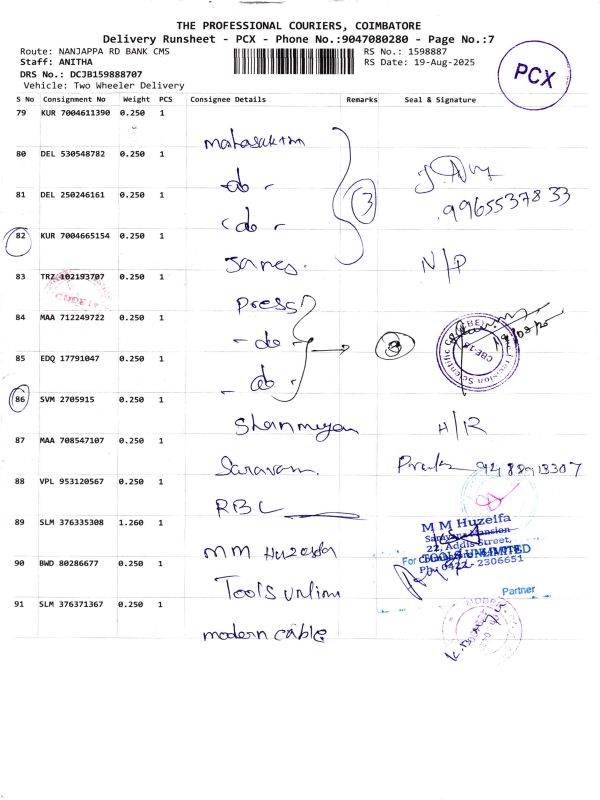 THE PROFESSIONAL COURIERS, COIMBATORE
Delivery Runsheet - PCX - Phone No.:9047080280 - Page No.:7
Route: NANJAPPA RD BANK CMS RS No.: 1598887
Staff: ANITHA RS Date: 19-Aug-2025
DRS No.: DCJB159888707
Vehicle: Two Wheeler Delivery
PCX
S No Consignment No Weight PCS Consignee Details Remarks Seal & Signature
79 KUR 7004611390 0.250 1 mahasakthi
80 DEL 530548782 0.250 1 - do -
81 DEL 250246161 0.250 1 - do - 3 9965537833
82 KUR 7004665154 0.250 1 James. N/P
83 TRZ 102193707 0.250 1 Press
84 MAA 712249722 0.250 1 - do -
85 EDQ 17791047 0.250 1 - do -
86 SVM 2705915 0.250 1 Shanmugan H/R
87 MAA 708547107 0.250 1 Saravan. 9488913307
88 VPL 953120567 0.250 1 RBL
89 SLM 376335308 1.260 1 MM Huzeifa
M M Huzeifa
22, Addis Street,
For TOOLS UNLIMITED
Ph: 0422 - 2306651
Partner
90 BWD 80286677 0.250 1 Tools unlim
91 SLM 376371367 0.250 1 modern cable